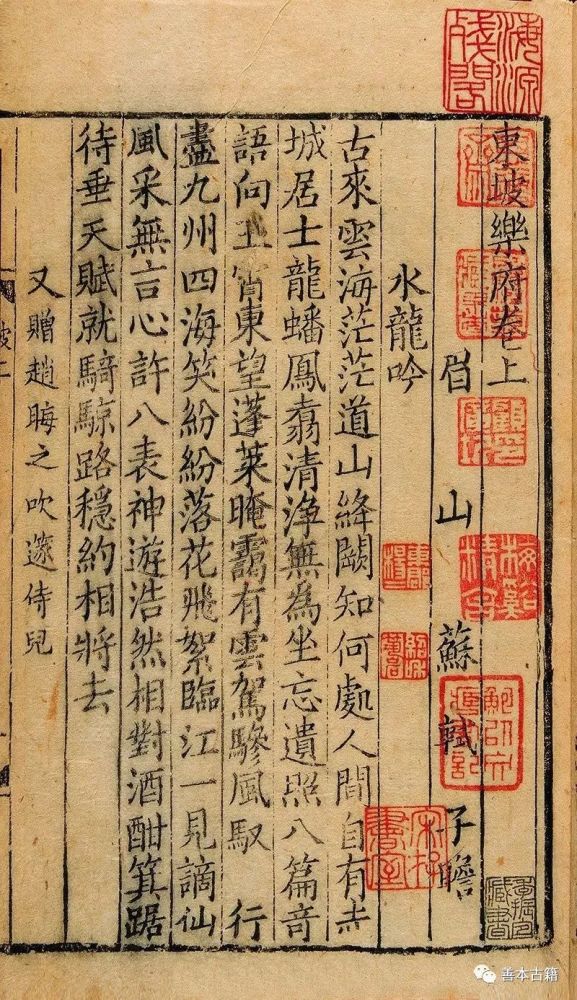 東坡樂府卷上
眉山蘇軾子瞻
水龍吟
古來雲海茫茫道山絳闕知何處人間自有赤
城居士龍蟠鳳翥清淨無為坐忘遺照八篇竒
語向玉霄東望蓬萊晻靄有雲駕驂風馭 行
盡九州四海笑紛紛落花飛絮臨江一見謫仙
風采無言心許八表神遊浩然相對酒酣箕踞
待垂天賦就騎鯨路穩約相將去
又贈趙晦之吹邃侍兒
海源殘閣
善本古籍